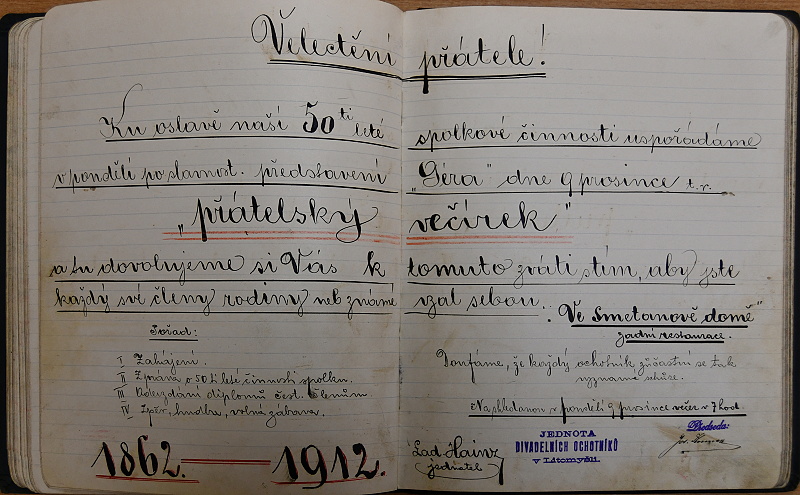 Velectění přátele!
Ku oslavě naší 50ti leté spolkové činnosti uspořádáme
v pondělí po slavnost. představení „Géra" dne 9 prosince t.r.
„přátelský večírek"
a tu dovolujeme si Vás k tomuto zváti s tím, aby jste
každý své členy rodiny neb známé vzal sebou.
„Ve Smetanově domě"
zadní restaurace.
Pořad:
I Zahájení.
II Zpráva o 50ti leté činnosti spolku.
III Odevzdání diplomů čest. členům
IV Zpěv, hudba, volná zábava.
Doufáme, že každý ochotník zúčastní se tak
významné schůze.
Na shledanou v pondělí 9 prosince večer v 7 hod.
1862. — 1912.
Lad. Hainz
jednatel
JEDNOTA
DIVADELNÍCH OCHOTNÍKŮ
v Litomyšli.
Předseda: